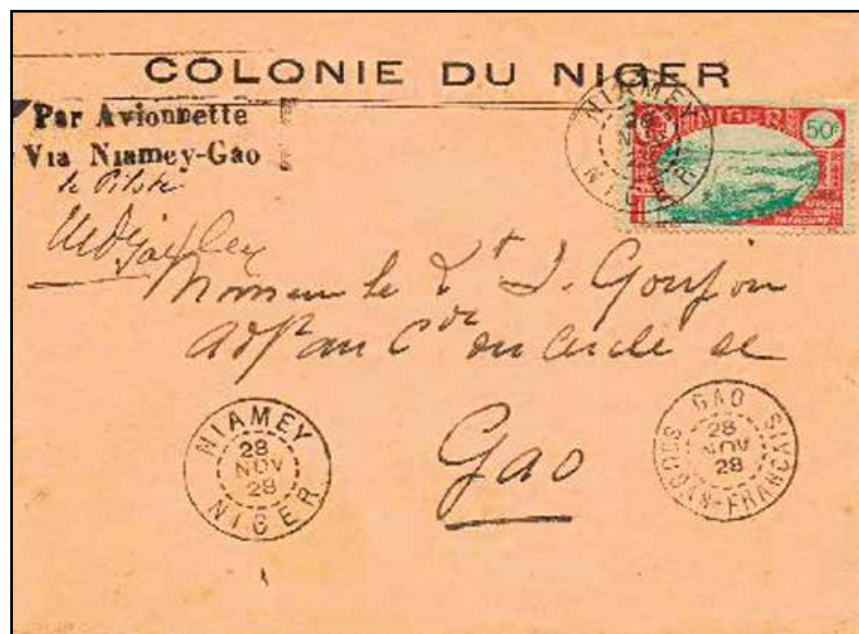 COLONIE DU NIGER
Par Avionnette
Via Niamey-Gao
le Pilote
NIAMEY
28
NIGER
NIGER
50c
AFRIQUE
OCCIDENTALE
FRANÇAISE
Monsieur le Lt J. Goujon
adjt au Cdt du Cercle de
Gao
NIAMEY
28
NOV
28
NIGER
GAO
28
NOV
28
SOUDAN-FRANÇAIS